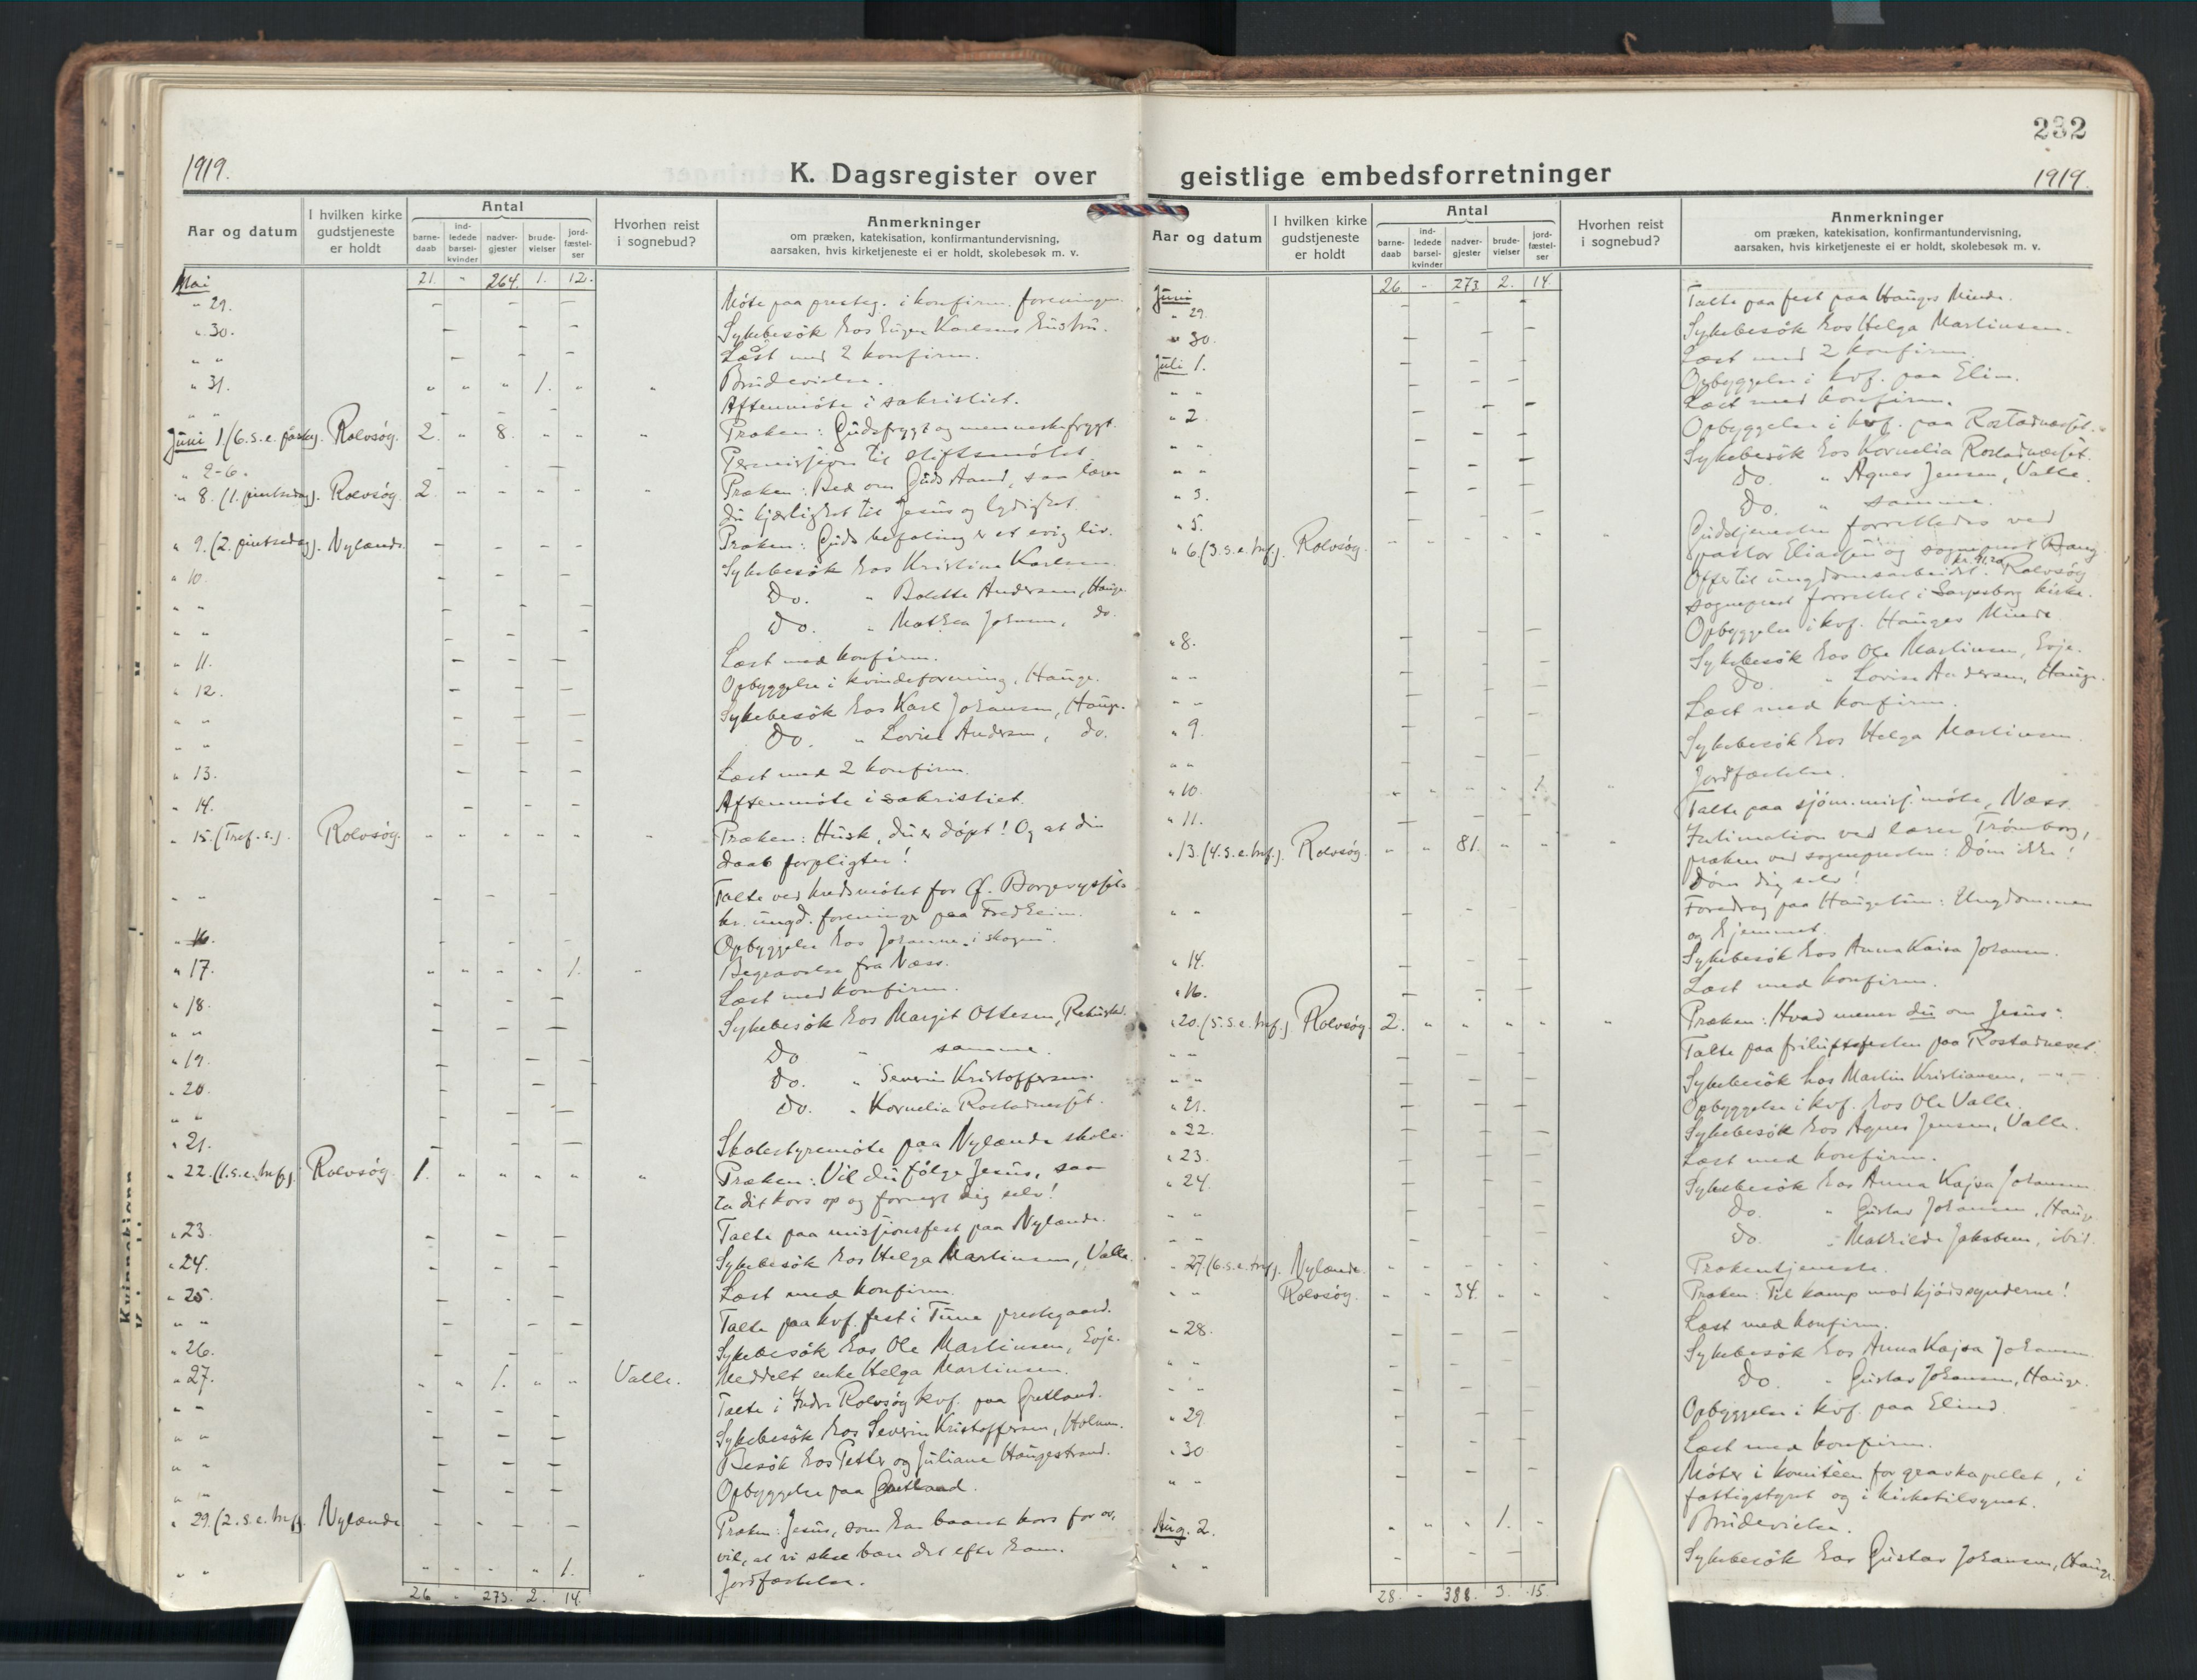 232
1919.
K. Dagsregister over geistlige embedsforretninger
1919.
Aar og datum
I hvilken kirke gudstjeneste er holdt
Antal
barne-daab
ind-ledede barsel-kvinder
nadver-gjester
brude-vielser
jord-fæstel-ser
Hvorhen reist i sognebud?
Anmerkninger
om præken, katekisation, konfirmantundervisning,
aarsaken, hvis kirketjeneste ei er holdt, skolebesøk m. v.
Mai 21. - 264. 1. 12.
" 29. Møte paa presteg. i konfirm. foreningen.
" 30. Sykebesøk hos Eugen Karlsens hustru.
" " Læst med 2 konfirm.
" 31. " " " 1. " " Brudevielse.
" " Aftenmøte i sakristiet.
Juni 1. (6. s. e. påske). Rolvsøg. 2. " 8. " " " Præken: Gudsfrygt og menneskefrygt.
" 2-6. Permisjon til stiftsmøtet.
" 8. (1. pintsedag). Rolvsøg. 2. " " " " " Præken: Bed om Guds Aand, saa lærer
du kjærlighet til Jesus og lydighet.
" 9. (2. pintsedag). Nylænde. Præken: Guds befaling er et evig liv.
" 10. Sykebesøk hos Kristine Karlsen.
" " Do. " Bolette Andersen, Hauge.
" " Do. " Mathea Johnsen, do.
" 11. Læst med konfirm.
" 12. Opbyggelse i kvindeforening, Hauge.
" " Sykebesøk hos Karl Johansen, Hauge.
" " Do. " Lovise Andersen, do.
" 13. Læst med 2 konfirm.
" 14. Aftenmøte i sakristiet.
" 15. (Tref. s.). Rolvsøg. " " " " " " Præken: Husk, du er døpt! Og at din
daab forpligter!
" " Talte ved kredsmøtet for Østf. Borgesyssels
kr. ungd. foreninger paa Fredheim.
" 16. Opbyggelse hos Johanne "i skogen".
" 17. " " " " 1. " Begravelse fra Næss.
" 18. Læst med konfirm.
" " Sykebesøk hos Margit Ottesen,
" 19. Do " samme.
" 20. Do. " Severin Kristoffersen.
" " Do. " Kornelia Rostadneset.
" 21. Skolestyremøte paa Nylænde skole.
" 22. (1. s. e. tref.). Rolvsøg. 1. " " " " " Præken: Vil du følge Jesus, saa
ta dit kors op og fornegt dig selv!
" 23. Talte paa missjonsfest paa Nylænde.
" 24. Sykebesøk hos Helga Martinsen, Valle.
" 25. Læst med konfirm.
" " Talte paa kvf. fest i Tune prestegaard.
" 26. Sykebesøk hos Ole Martinsen, Evje.
" 27. " " 1. " " Valle. Meddelt enke Helga Martinsen.
" " Talte i Indre Rolvsøg kvf. paa Gretland.
" " Sykebesøk hos Severin Kristoffersen, Holmen.
" " Besøk hos Petter og Juliane Haugestrand.
" " Opbyggelse paa Gretland.
" 29. (2. s. e. tref.). Nylænde Præken: Jesus, som har baaret kors for os,
vil, at vi skal bære det efter ham.
" " " " " " 1. " Jordfæstelse.
26 - 273. 2. 14.
Aar og datum
I hvilken kirke gudstjeneste er holdt
Antal
barne-daab
ind-ledede barsel-kvinder
nadver-gjester
brude-vielser
jord-fæstel-ser
Hvorhen reist i sognebud?
Anmerkninger
om præken, katekisation, konfirmantundervisning,
aarsaken, hvis kirketjeneste ei er holdt, skolebesøk m. v.
Juni 26 - 273 2. 14.
" 29. Talte paa fest paa Hauges Minde.
" 30. Sykebesøk hos Helga Martinsen.
Juli 1. Læst med 2 konfirm.
Opbyggelse i kvf. paa Elim.
" " Læst med konfirm.
" 2. Opbyggelse i kvf. paa Rostadneset.
" " Sykebesøk hos Kornelia Rostadneset.
" " Do. " Agnes Jensen, Valle.
" 3. Do. " samme.
" 5.
" 6. (3. s. e. tref.). Rolvsøg. Gudstjenesten forrettedes ved
pastor Eliassen og sogneprest Haug.
Offer til ungdomsarbeidet. Rolvsøg
sogneprest forrettet i Sarpsborg kirke.
Opbyggelse i kvf. Hauges Minde.
" 8. Sykebesøk hos Ole Martinsen, Evje.
" " Do. " Lovise Andersen, Hauge.
" " Læst med konfirm.
" 9. Sykebesøk hos Helga Martinsen.
" "
" 10. " " " " 1. " Jordfæstelse.
" 11. Talte paa sjøm. misj. møte, Næss.
" 13. (4. s. e. tref.). Rolvsøg. " " 81. " " " Intimation ved lærer Trømborg,
præken ved sognepresten: Døm ikke!
Døm dig selv!
" " Foredrag paa Haugetun: Ungdommen
og hjemmet.
" 14. Sykebesøk hos Anna Kaisa Johansen.
" 16. Læst med konfirm.
" 20. (5. s. e. tref.) Rolvsøg. 2. " " " " " Præken: Hvad mener du om Jesus?
" " Talte paa friluftsfesten paa Rostadneset.
" " Sykebesøk hos Martin Kristiansen, -"-
" 21. Opbyggelse i kvf. hos Ole Valle.
" 22. Sykebesøk hos Agnes Jensen, Valle.
" 23. Læst med konfirm.
" 24. Sykebesøk hos Anna Kajsa Johansen
" " Do. " Gustav Johansen, Hauge
" " Do. " Mathilde Jakobsen, ibid.
" 27. (6. s. e. tref.). Nylænde. Prækentjeneste.
" " Rolvsøg. " " 34. " " " Præken: Til kamp mod kjødssynderne!
" 28. Læst med konfirm.
" " Sykebesøk hos Anna Kajsa Johansen
" " Do. " Gustav Johansen, Hauge.
" 29. Opbyggelse i kvf. paa Elim.
" 30 Læst med konfirm.
" " Møter i komitéen for gravkapellet, i
fattigstyret og i kirketilsynet.
Aug. 2. " " " 1. " Brudevielse.
" " Sykebesøk hos Gustav Johansen, Hauge.
28. - 388. 3. 15.